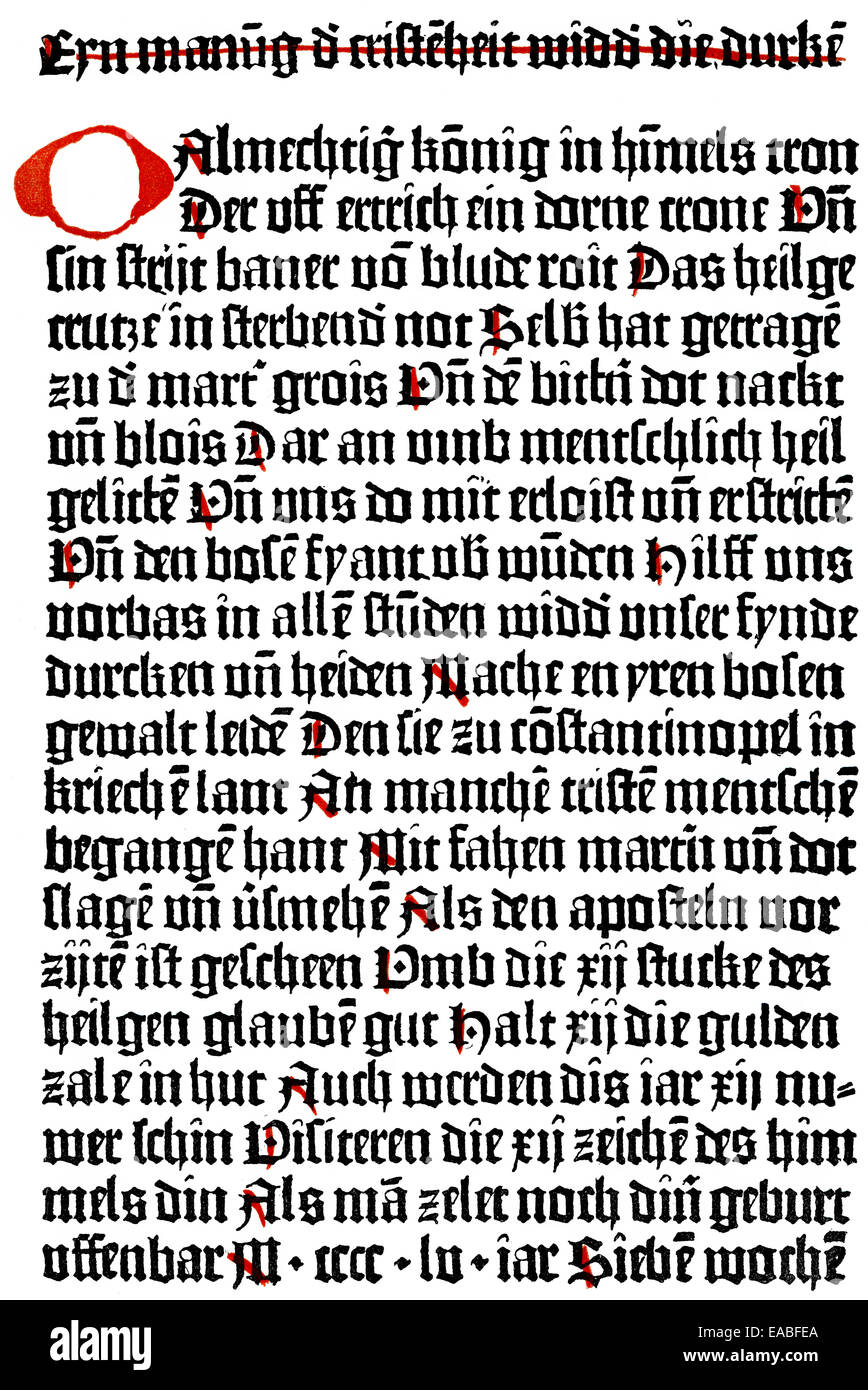 Eyn manūg d' cristēheit widd' die durkē
O Almechtig' kōnig in hīmels tron
Der uff ertrich ein dorne crone Uñ
sin strijt baner vō blude roit Das heilge
crutze in sterbend' not Selb hat getragē
zu d' mart' grois Uñ dē bittn̄ dot nackt
uñ blois Dar an vmb mentschlich heil
gelittē Uñ uns do mit erloist uñ erstrittē
Uñ den bosē fyant vb' wūden Hilff uns
vorbas in allē stūden widd' unser fynde
durcken uñ heiden Mache en yren bosen
gewalt leidē Den sie zu cōstantinopel in
kriechē lant An manchē cristē mentschē
begangē hant Mit fahen martn̄ uñ dot
slagē uñ v'smehē Als den aposteln vor
zijtē ist gescheen Umb die xij stucke des
heilgen glaubē gut Halt xij die gulden
zale in hut Auch werden dis iar xij nu=
wer schin Visiteren die xij zeichē des him
mels din Als mā zelet noch diñ geburt
offenbar M · cccc · lv · iar Siebē wochē
alamy
Image ID: EABFEA
www.alamy.com